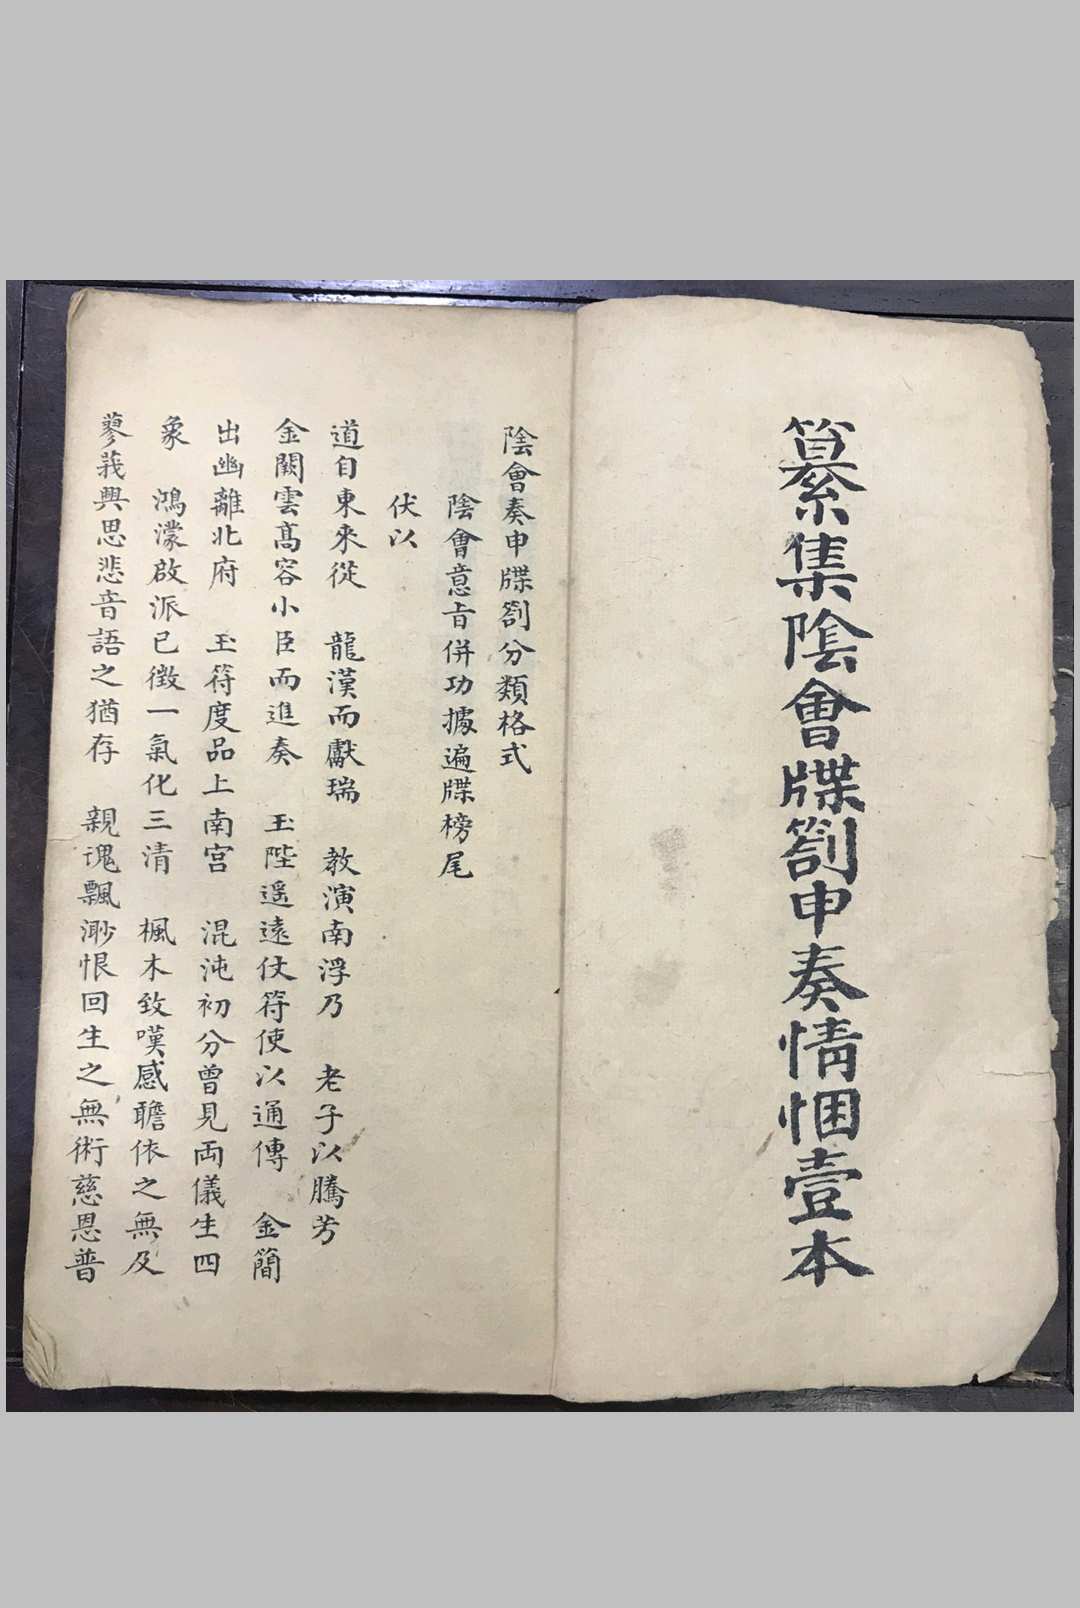 纂集陰會牒劄申奏情悃壹本
陰會奏申牒劄分類格式
陰會意旨併功據遍牒榜尾
伏以
道自東來從　龍漢而獻瑞　教演南浮乃　老子以騰芳
金闕雲高容小臣而進奏　玉陛遥遠仗符使以通傳　金簡
出幽離北府　玉符度品上南宮　混沌初分曾見両儀生四
象　鴻濛啟派已徵一氣化三清　楓木致嘆感瞻依之無及
蓼莪興思悲音語之猶存　親魂飄渺恨回生之無術慈恩普